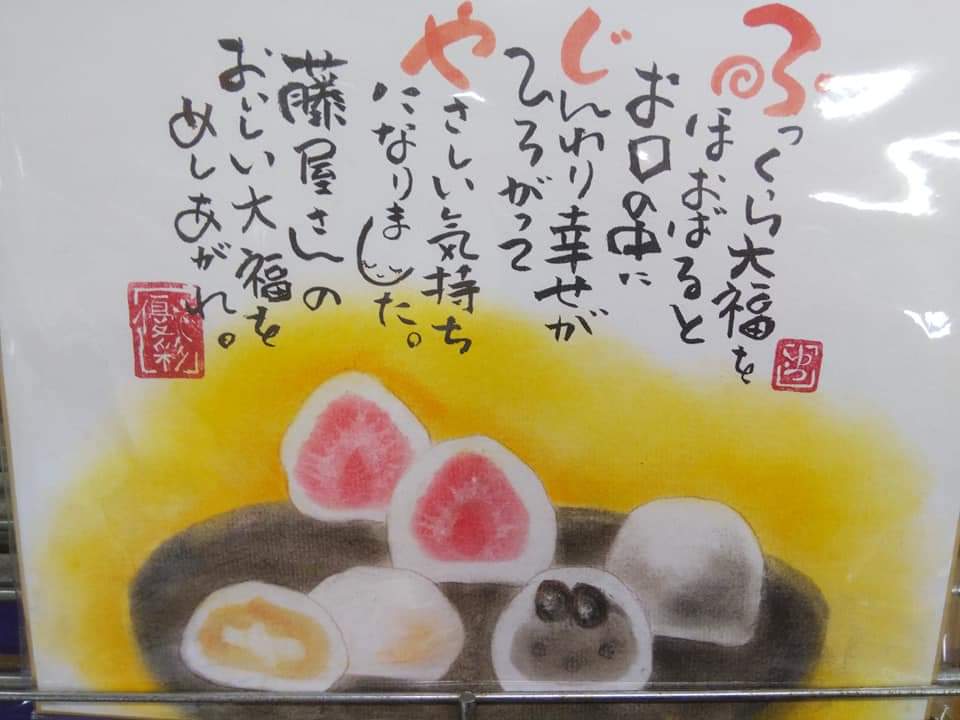 ふっくら大福を
ほおばると
お口の中に
じんわり幸せが
ひろがって
やさしい気持ち
になりました。
藤屋さんの
おいしい大福を
めしあがれ。